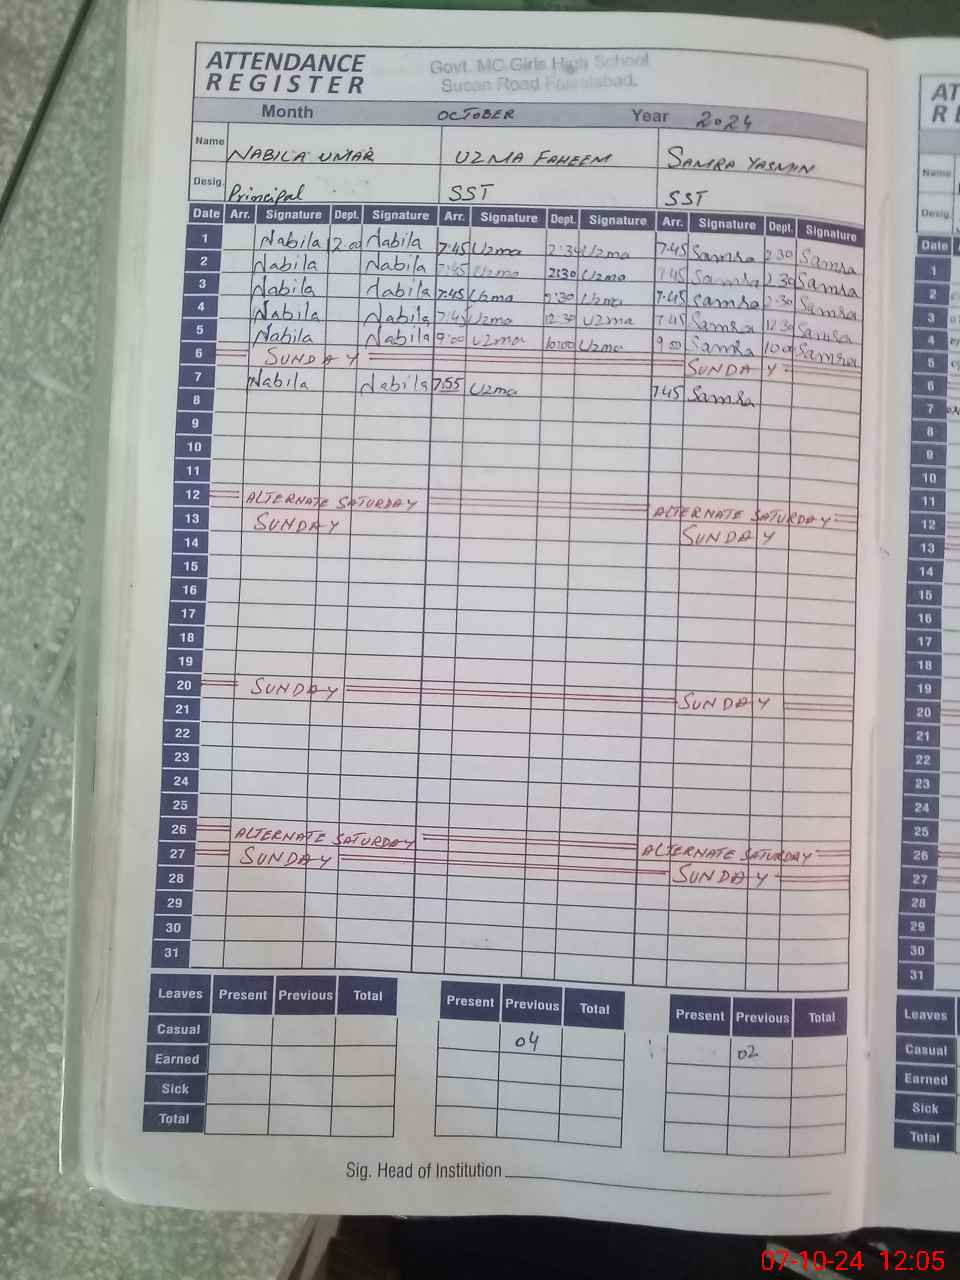 ATTENDANCE REGISTER
Govt. MC Girls High School
Susan Road Faisalabad.
Month OCTOBER Year 2024
Name NABILA UMAR UZMA FAHEEM SAMRA YASMIN
Desig. Principal SST SST
Date Arr. Signature Dept. Signature Arr. Signature Dept. Signature Arr. Signature Dept. Signature
1 Nabila 12.00 Nabila 7:45 Uzma 2:30 Uzma 7:45 Samra 2:30 Samra
2 Nabila Nabila 7:45 Uzma 2:30 Uzma 7:45 Samra 2:30 Samra
3 Nabila Nabila 7:45 Uzma 2:30 Uzma 7:45 Samra 2:30 Samra
4 Nabila Nabila 7:45 Uzma 12:30 Uzma 7:45 Samra 12:30 Samra
5 Nabila Nabila 9:00 Uzma 10:00 Uzma 9:00 Samra 10:00 Samra
6 SUNDAY SUNDAY
7 Nabila Nabila 7:55 Uzma 7:45 Samra
8
9
10
11
12 ALTERNATE SATURDAY ALTERNATE SATURDAY
13 SUNDAY SUNDAY
14
15
16
17
18
19
20 SUNDAY SUNDAY
21
22
23
24
25
26 ALTERNATE SATURDAY ALTERNATE SATURDAY
27 SUNDAY SUNDAY
28
29
30
31
Leaves Present Previous Total Present Previous Total Present Previous Total
Casual 04 02
Earned
Sick
Total
Sig. Head of Institution
Name
Desig.
Date
1
2
3
4
5
6
7
8
9
10
11
12
13
14
15
16
17
18
19
20
21
22
23
24
25
26
27
28
29
30
31
Leaves
Casual
Earned
Sick
Total
07-10-24 12:05